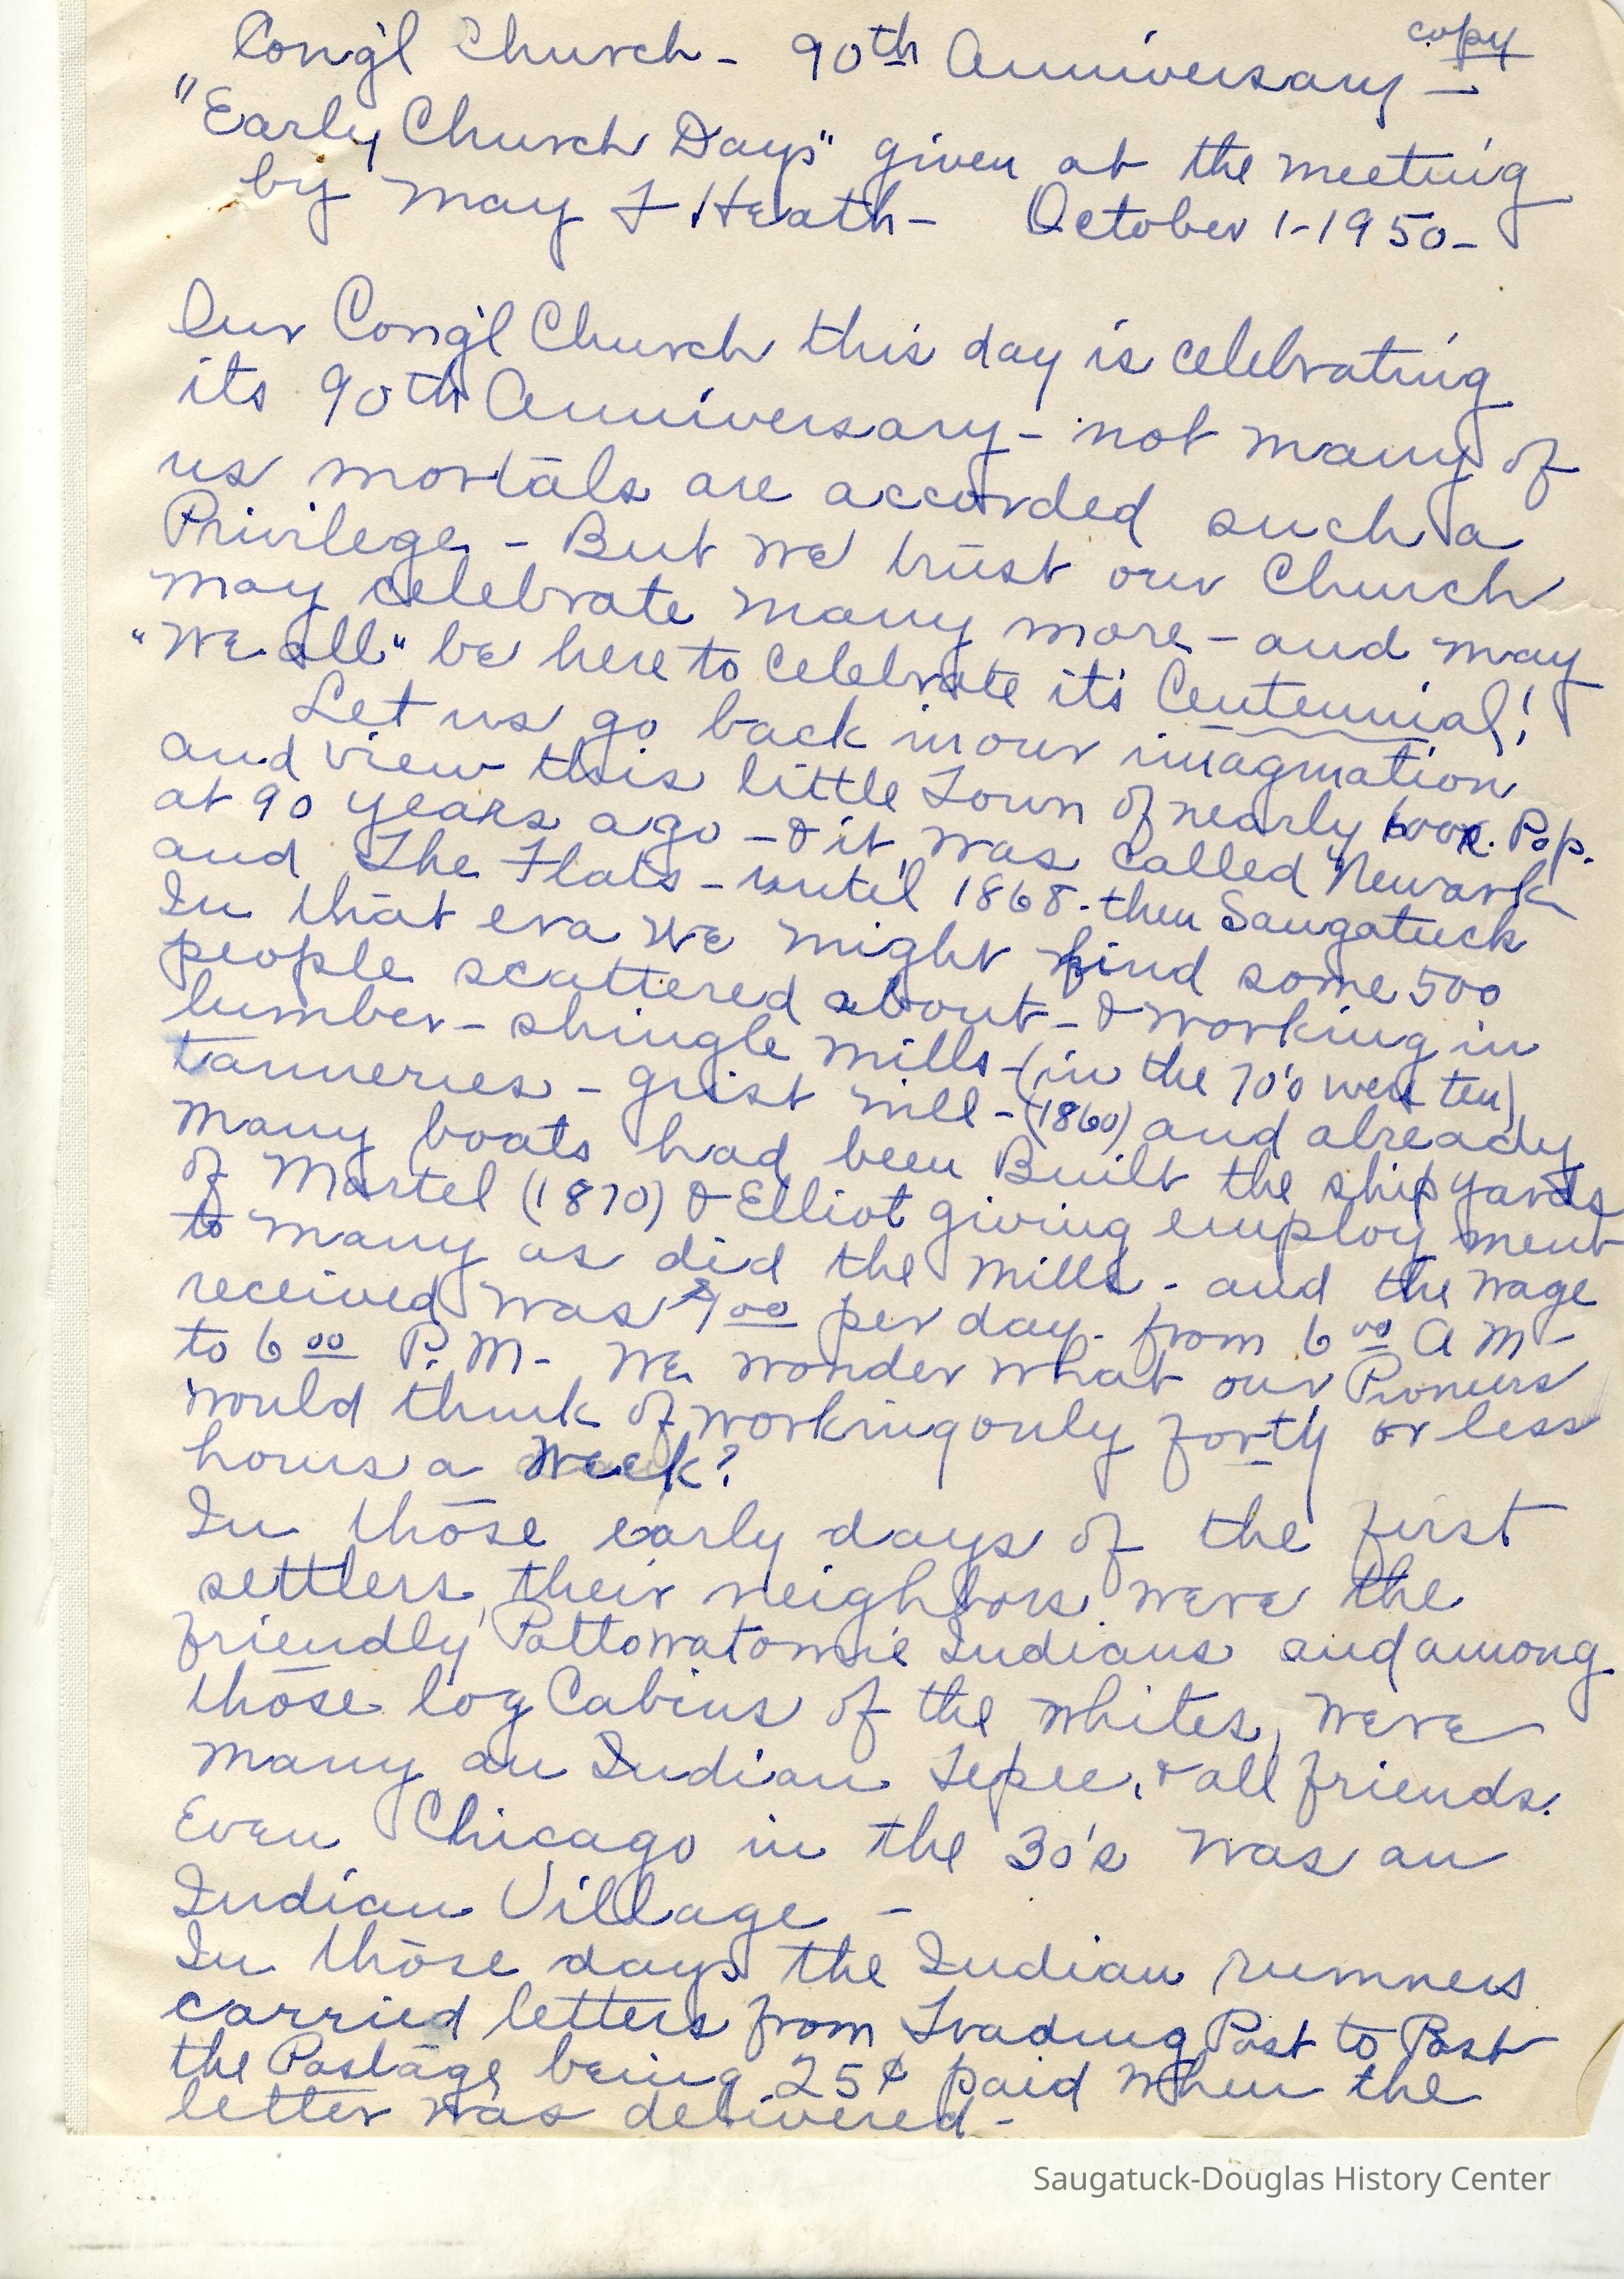 copy
Cong'l Church - 90th Anniversary -
"Early Church Days" given at the meeting
by May F Heath - October 1-1950-
Our Cong'l Church this day is celebrating
its 90th Anniversary - not many of
us mortals are accorded such a
Privilege - But we trust our Church
may celebrate many more - and may
"We all" be here to Celebrate its Centennial!
Let us go back in our imagination
and view this little Town of nearly Pop.
at 90 years ago - & it was called Newark
and The Flats - until 1868 - then Saugatuck
In that era we might find some 500
people scattered about - & working in
lumber - shingle mills - (in the 70's were ten)
tanneries - grist mill - (1860) and already
many boats had been Built the ship yards
of Martel (1870) & Elliot giving employ ment
to many as did the Mills - and the wage
received was $1 00 per day - from 6 00 A M -
to 6 00 P. M - We wonder what our Pioneers
would think of working only forty or less
hours a Week?
In those early days of the first
settlers, their neighbors were the
friendly Pottowatomie Indians and among
those log Cabins of the whites, were
many an Indian Tepee, & all friends.
Even Chicago in the 30's was an
Indian Village -
In those days the Indian runners
carried letters from Trading Post to Post
the Postage being 25¢ paid when the
letter was delivered -
Saugatuck-Douglas History Center